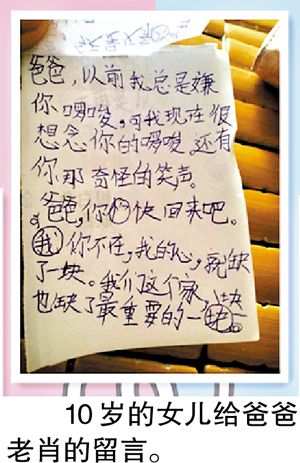 爸爸,以前我总是嫌
你啰唆,可我现在很
想念你的啰唆,还有
你那奇怪的笑声。
爸爸,你快回来吧。
我你不在,我的心,就缺
了一块。我们这个家,
也缺了最重要的一块。
10岁的女儿给爸爸
老肖的留言。